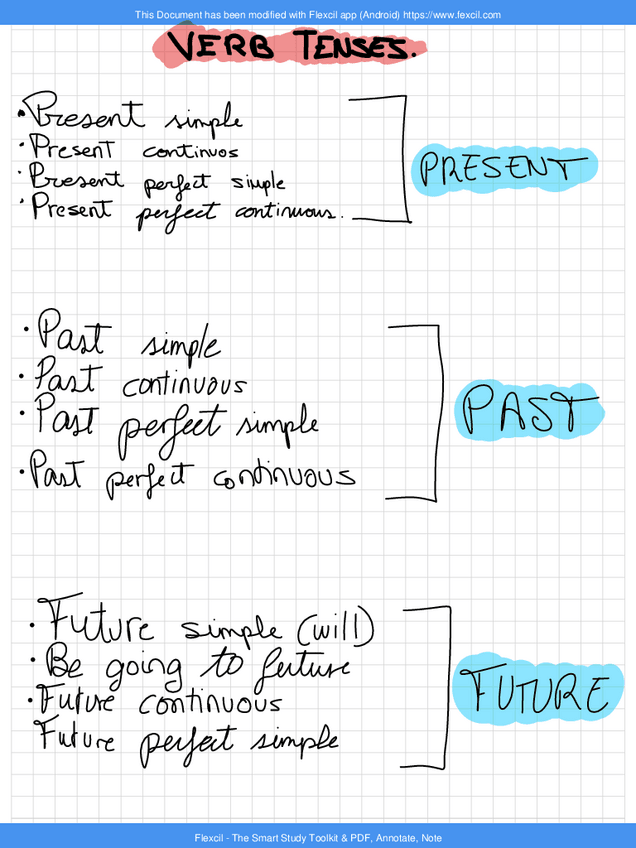 This Document has been modified with Flexcil app (Android) https://www.fexcil.com
VERB TENSES.
• Present simple
• Present continuos
• Present perfect simple
• Present perfect continuous.
PRESENT
• Past simple
• Past continuous
• Past perfect simple
• Past perfect continuous
PAST
• Future simple (will)
• Be going to future
• Future continuous
Future perfect simple
FUTURE
Flexcil - The Smart Study Toolkit & PDF, Annotate, Note